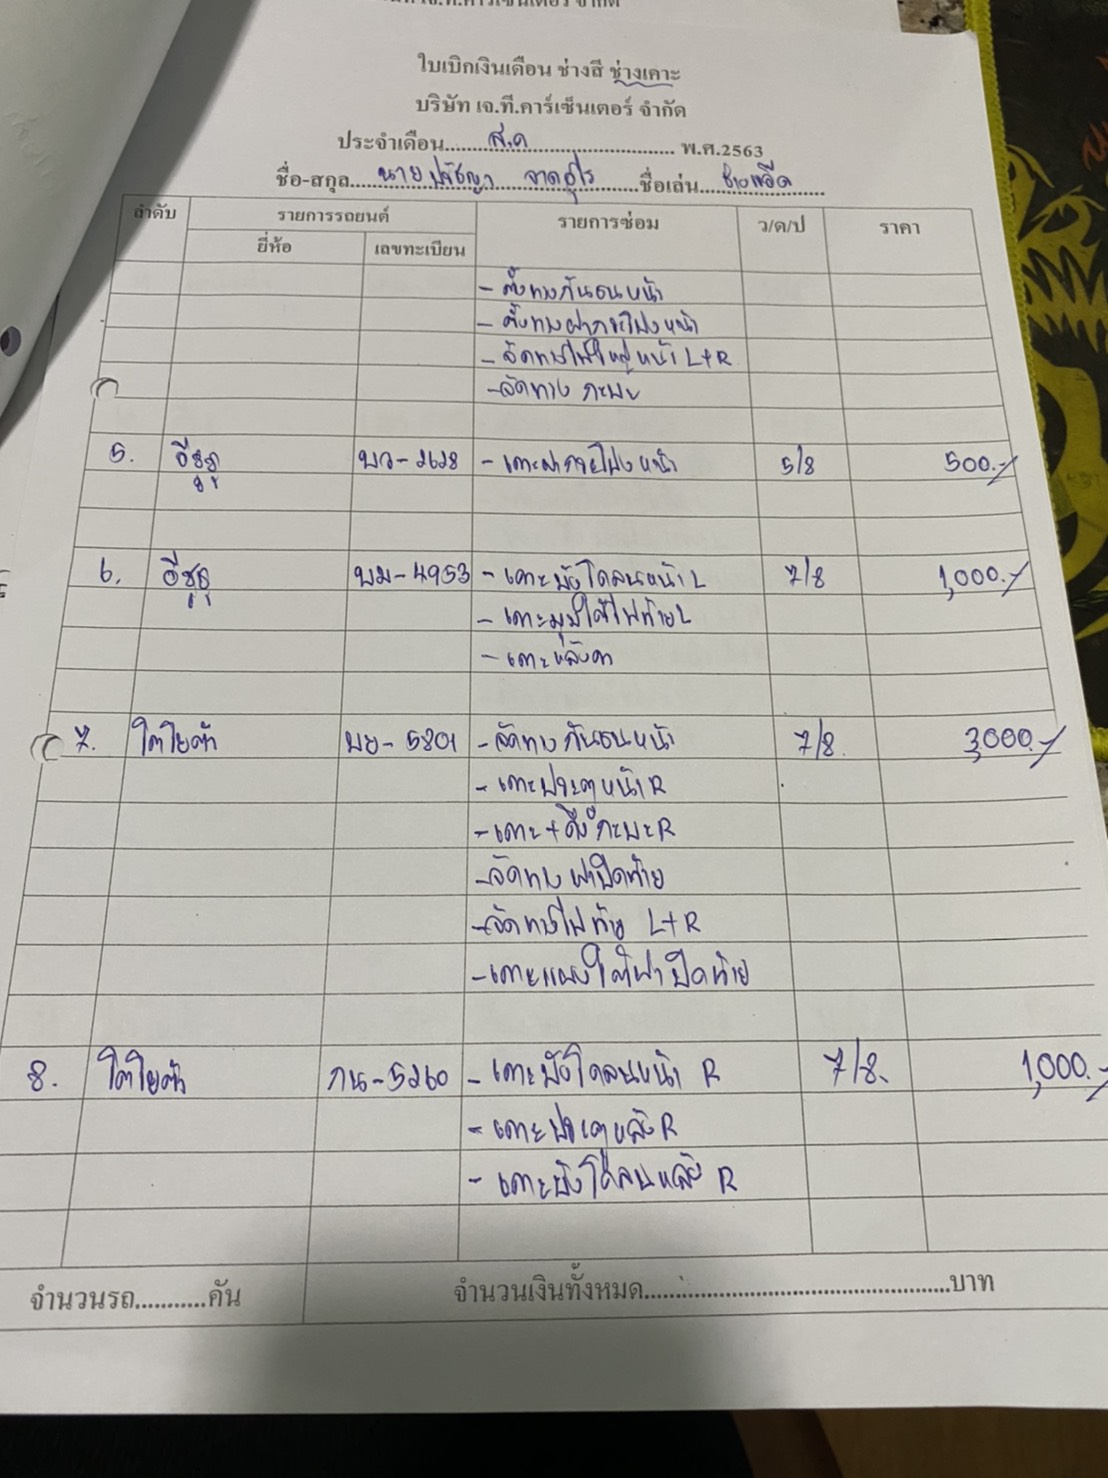 ใบเบิกเงินเดือน ช่างสี ช่างเคาะ
บริษัท เจ.ที.คาร์เซ็นเตอร์ จำกัด
ประจำเดือน ส.ค พ.ศ.2563
ชื่อ-สกุล นาย ปรัชญา ชื่อเล่น
ลำดับ รายการรถยนต์ รายการซ่อม ว/ด/ป ราคา
ยี่ห้อ เลขทะเบียน
- ตั้งทางกันชนหน้า
- ตั้งทางฝากระโปงหน้า
- จัดทางไฟใหญ่หน้า L+R
- จัดทาง กะบะ
5. อีซูซุ บว-2628 - เคาะฝากระโปงหน้า 5/8 500.-
6. อีซูซุ บม-4953 - เคาะบังโคลนหน้า L 7/8 1,000.-
- เคาะมุมใต้ไฟท้าย L
- เคาะหลังคา
7. โตโยต้า บย-5801 - จัดทางกันชนหน้า 7/8. 3,000.-
- เคาะประตูหน้า R
- เคาะ+ดึงกะบะ R
- จัดทางฝาปิดท้าย
- จัดทางไฟท้าย L+R
- เคาะแผงใต้ฝาปิดท้าย
8. โตโยต้า กน-5260 - เคาะบังโคลนหน้า R 7/8. 1,000.-
- เคาะประตูหลัง R
- เคาะบังโคลนหลัง R
จำนวนรถ...........คัน จำนวนเงินทั้งหมด..................................................บาท